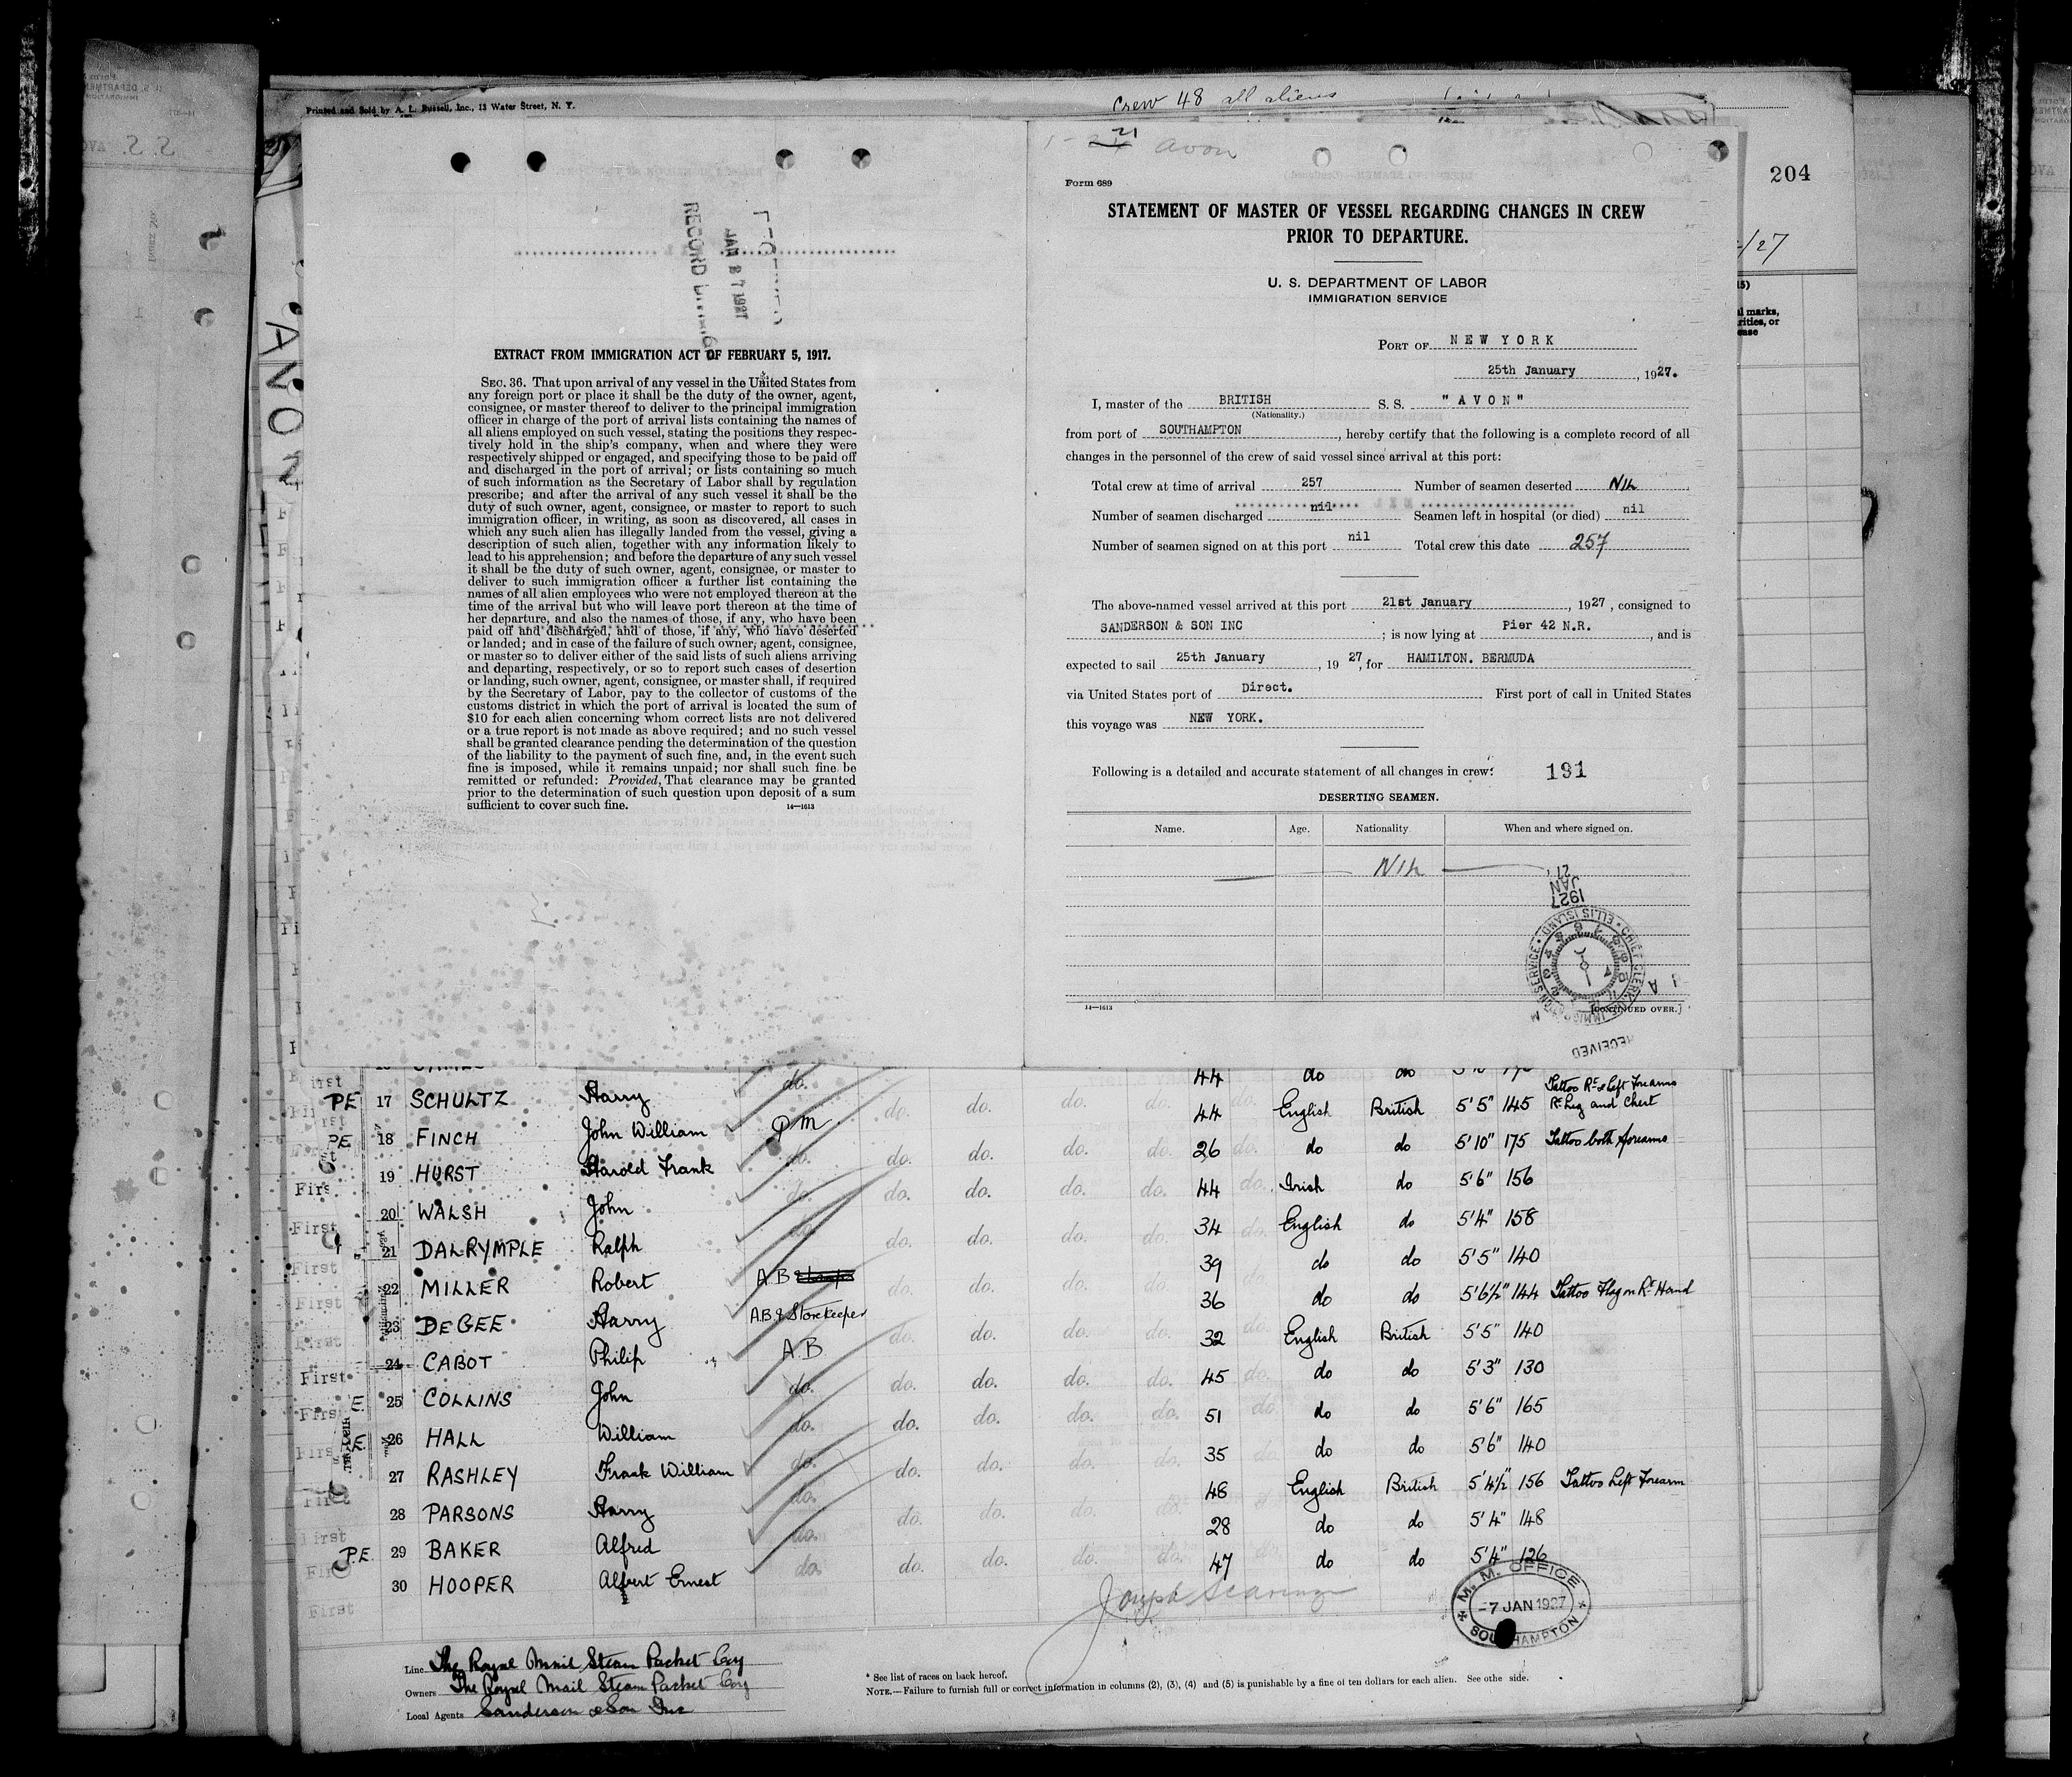 Printed and Sold by A. L. Russell, Inc., 13 Water Street, N. Y.
Crew 48 all aliens
204
/27
AVON
RECORD
JAN 27 1927
EXTRACT FROM IMMIGRATION ACT OF FEBRUARY 5, 1917.
SEC. 36. That upon arrival of any vessel in the United States from
any foreign port or place it shall be the duty of the owner, agent,
consignee, or master thereof to deliver to the principal immigration
officer in charge of the port of arrival lists containing the names of
all aliens employed on such vessel, stating the positions they respec-
tively hold in the ship's company, when and where they were
respectively shipped or engaged, and specifying those to be paid off
and discharged in the port of arrival; or lists containing so much
of such information as the Secretary of Labor shall by regulation
prescribe; and after the arrival of any such vessel it shall be the
duty of such owner, agent, consignee, or master to report to such
immigration officer, in writing, as soon as discovered, all cases in
which any such alien has illegally landed from the vessel, giving a
description of such alien, together with any information likely to
lead to his apprehension; and before the departure of any such vessel
it shall be the duty of such owner, agent, consignee, or master to
deliver to such immigration officer a further list containing the
names of all alien employees who were not employed thereon at the
time of the arrival but who will leave port thereon at the time of
her departure, and also the names of those, if any, who have been
paid off and discharged, and of those, if any, who have deserted
or landed; and in case of the failure of such owner, agent, consignee,
or master so to deliver either of the said lists of such aliens arriving
and departing, respectively, or so to report such cases of desertion
or landing, such owner, agent, consignee, or master shall, if required
by the Secretary of Labor, pay to the collector of customs of the
customs district in which the port of arrival is located the sum of
$10 for each alien concerning whom correct lists are not delivered
or a true report is not made as above required; and no such vessel
shall be granted clearance pending the determination of the question
of the liability to the payment of such fine, and, in the event such
fine is imposed, while it remains unpaid; nor shall such fine be
remitted or refunded: Provided, That clearance may be granted
prior to the determination of such question upon deposit of a sum
sufficient to cover such fine.
14—1613
21 Avon
Form 689
STATEMENT OF MASTER OF VESSEL REGARDING CHANGES IN CREW
PRIOR TO DEPARTURE.
U. S. DEPARTMENT OF LABOR
IMMIGRATION SERVICE
PORT OF NEW YORK
25th January, 1927.
I, master of the BRITISH S. S. "AVON"
(Nationality.)
from port of SOUTHAMPTON, hereby certify that the following is a complete record of all
changes in the personnel of the crew of said vessel since arrival at this port:
Total crew at time of arrival 257 Number of seamen deserted NIL
Number of seamen discharged nil Seamen left in hospital (or died) nil
Number of seamen signed on at this port nil Total crew this date 257
The above-named vessel arrived at this port 21st January, 1927, consigned to
SANDERSON & SON INC; is now lying at Pier 42 N.R., and is
expected to sail 25th January, 1927, for HAMILTON. BERMUDA
via United States port of Direct. First port of call in United States
this voyage was NEW YORK.
Following is a detailed and accurate statement of all changes in crew: 191
DESERTING SEAMEN.
Name. Age. Nationality When and where signed on.
NIL
1927 JAN 27
IMMIGRATION SERVICE ELLIS ISLAND CHIEF CLERK
RECEIVED
14—1613
[CONTINUED OVER.]
al marks,
rities, or
ease
do. 44 do do
PE 17 SCHULTZ Harry do. do. do. do. 44 English British 5'5" 145 Tattoo Rt & Left Forearms Rt Leg and Chest
PE 18 FINCH John William P M do. do. do. do. 26 do do 5'10" 175 Tattoo both forearms
First 19 HURST Harold Frank do. do. do. do. do. 44 Irish do 5'6" 156
First 20 WALSH John do. 34 English do 5'4" 158
First 21 DALRYMPLE Ralph do. do. do. do. do. 39 do do 5'5" 140
First 22 MILLER Robert A.B do. do. do. do. 36 do do 5'6½" 144 Tattoo Flag on Rt Hand
First 23 DEGEE Harry A.B & Storekeeper do. do. do. do. 32 English British 5'5" 140
First 24 CABOT Philip A B do. do. do. do. 45 do do 5'3" 130
First 25 COLLINS John do. do. do. do. do. 51 do do 5'6" 165
26 HALL William do. 35 do do 5'6" 140
27 RASHLEY Frank William do. do. do. do. do. 48 English British 5'4½" 156 Tattoo Left Forearm
First 28 PARSONS Harry do. do. do. do. do. 28 do do 5'4" 148
P.E. 29 BAKER Alfred do. do. do. do. do. 47 do do 5'4" 126
First 30 HOOPER Albert Ernest do.
M. M. OFFICE
-7 JAN 1927
SOUTHAMPTON
Line The Royal Mail Steam Packet Coy
Owners The Royal Mail Steam Packet Coy
Local Agents Sanderson & Son Inc
* See list of races on back hereof.
NOTE.—Failure to furnish full or correct information in columns (2), (3), (4) and (5) is punishable by a fine of ten dollars for each alien. See othe side.